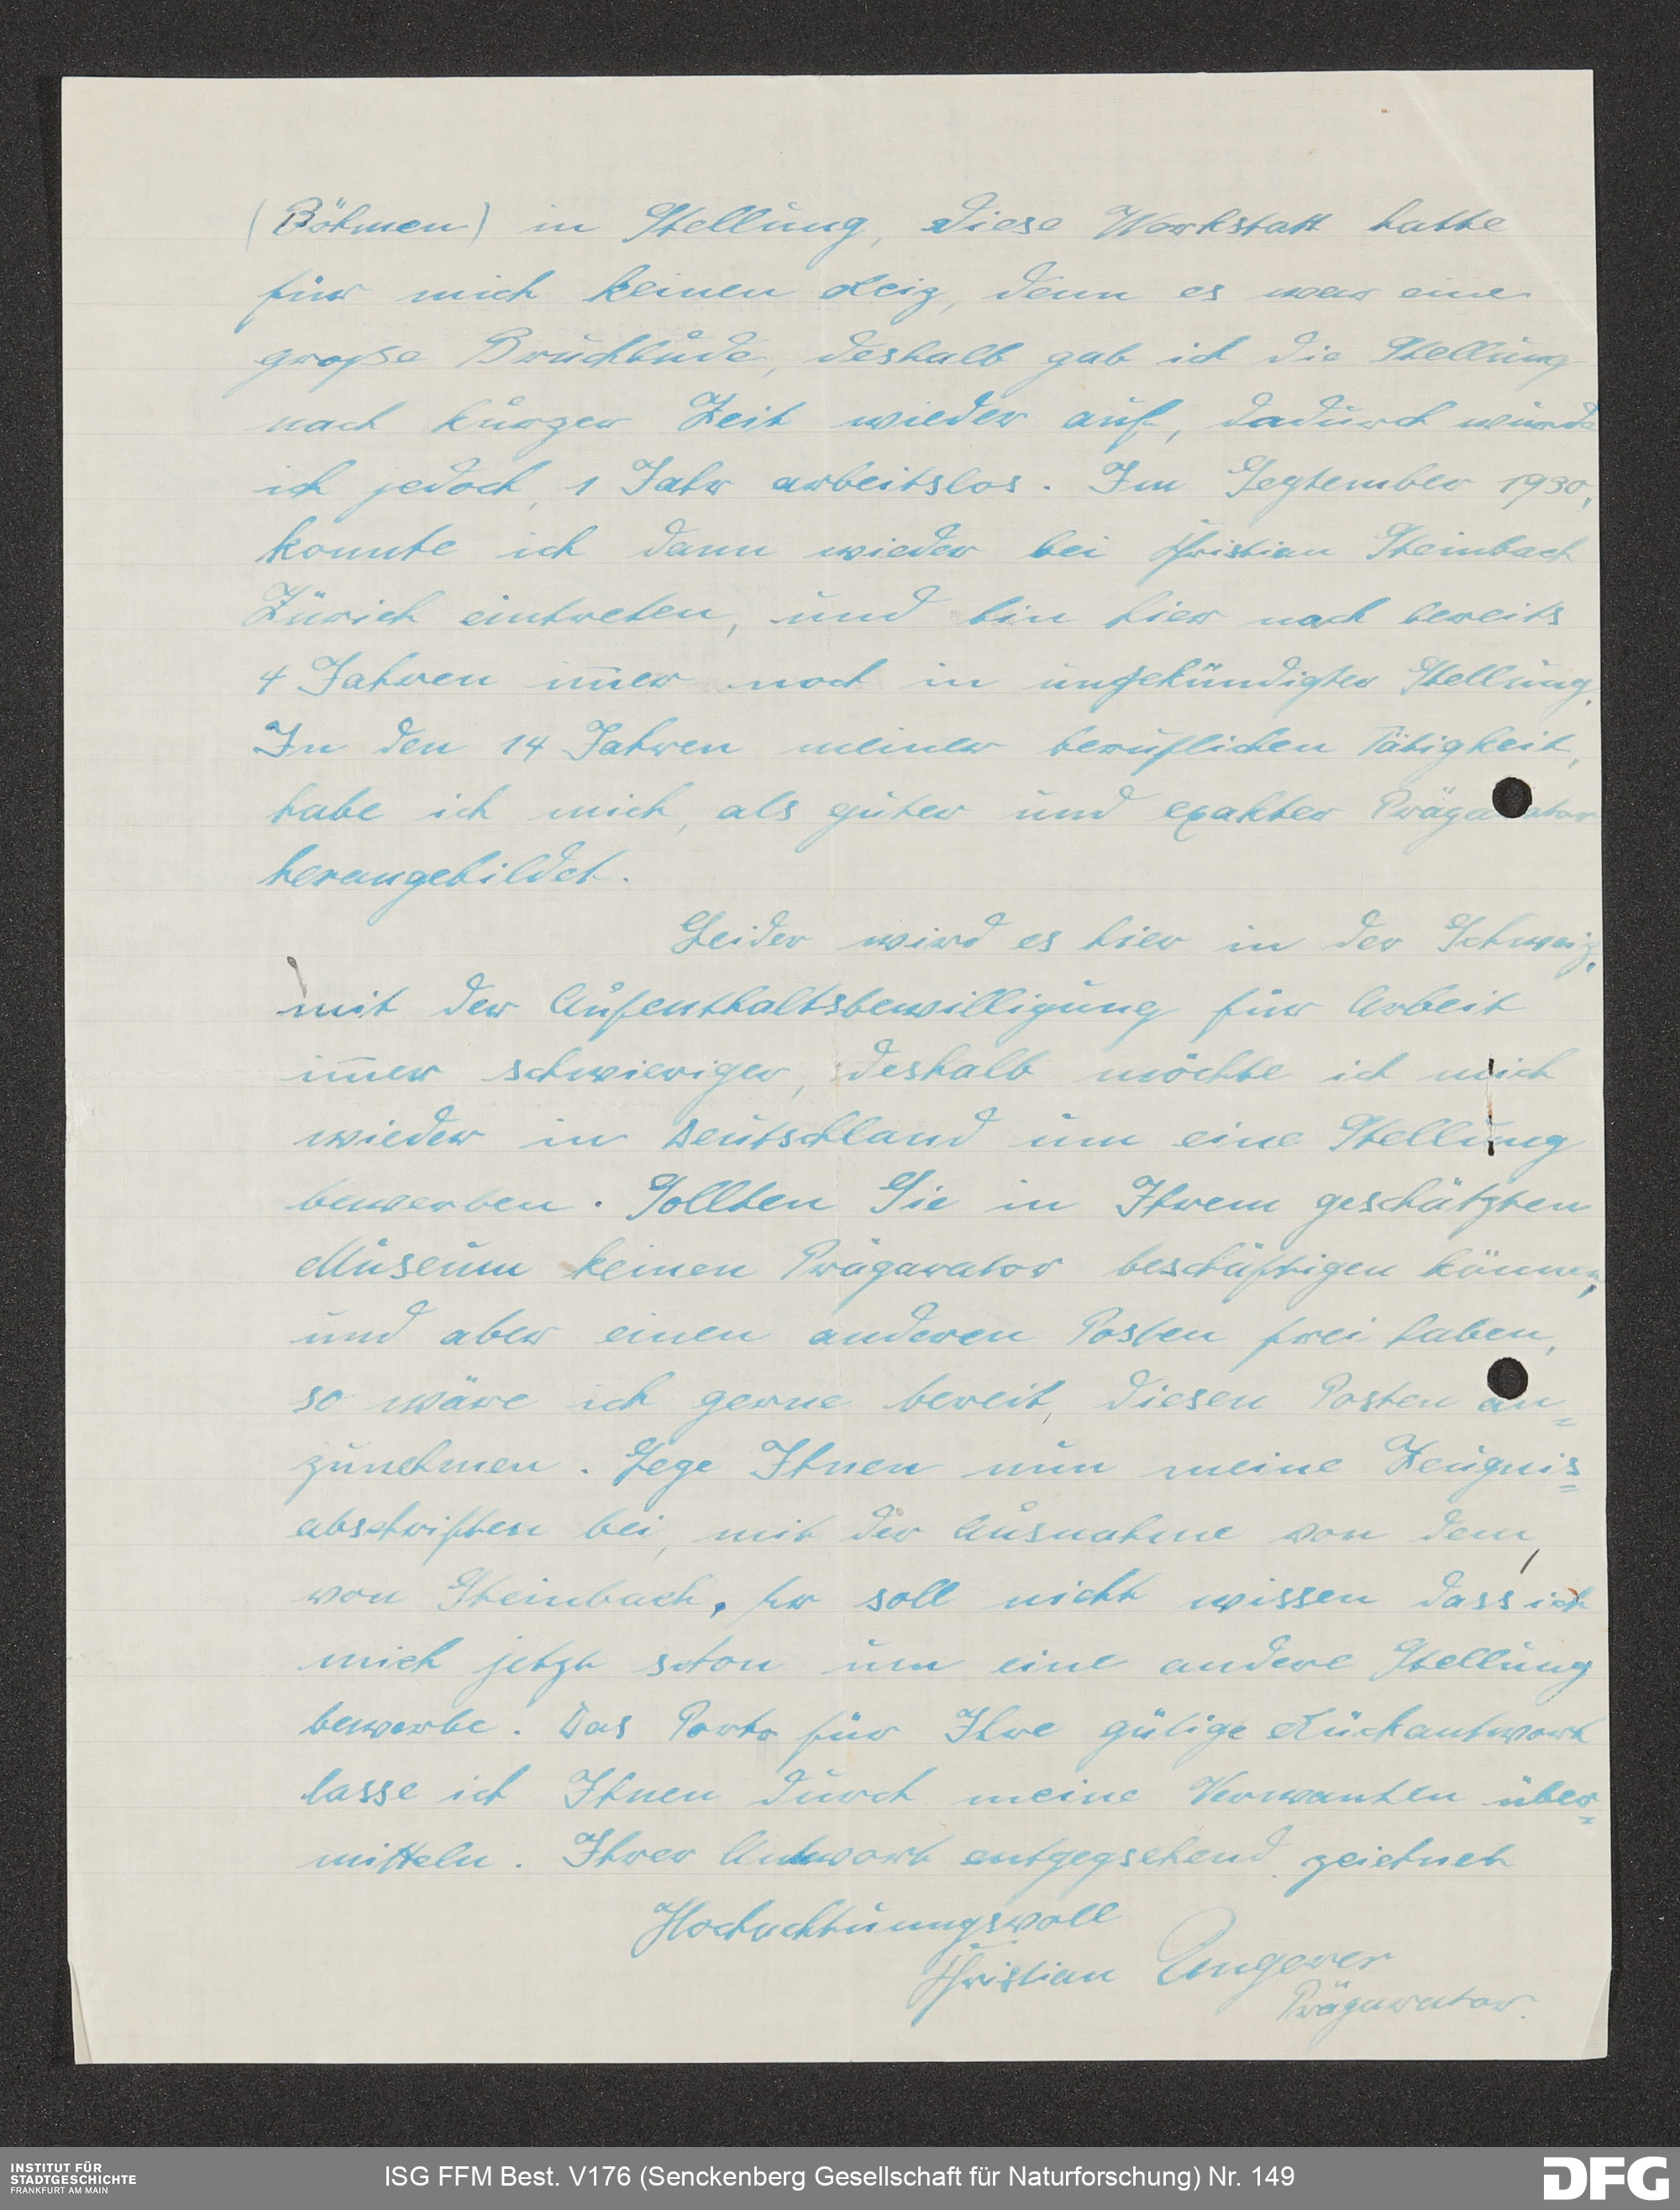 (Böhmen) in Stellung, diese Werkstatt hatte
für mich keinen Reiz, denn es war eine
große Bruchbude, deshalb gab ich die Stellung
nach kurzer Zeit wieder auf, dadurch wurde
ich jedoch, 1 Jahr arbeitslos. Im September 1930,
konnte ich dann wieder bei Christian Steinbach
Zürich eintreten, und bin hier nach bereits
4 Jahren im̅er noch in ungekündigter Stellung.
In den 14 Jahren meiner beruflichen Tätigkeit,
habe ich mich, als guter und exakter Präparator
herangebildet.
Leider wird es hier in der Schweiz,
mit der Aufenthaltsbewilligung für Arbeit
im̅er schwieriger, deshalb möchte ich mich
wieder in Deutschland um eine Stellung
bewerben. Sollten Sie in Ihrem geschätzten
Museum keinen Präparator beschäftigen können,
und aber einen anderen Posten frei haben,
so wäre ich gerne bereit, diesen Posten an=
zunehmen. Lege Ihnen nun meine Zeugnis=
abschriften bei, mit der Ausnahme von dem,
von Steinbach. Er soll nicht wissen dass ich
mich jetzt schon um eine andere Stellung
bewerbe. Das Porto für Ihre gütige Rückantwort
lasse ich Ihnen durch meine Verwanten über=
mitteln. Ihrer Antwort entgegsehend zeichnet
Hochachtuungsvoll
Christian Angerer
Präparator.
INSTITUT FÜR
STADTGESCHICHTE
FRANKFURT AM MAIN
ISG FFM Best. V176 (Senckenberg Gesellschaft für Naturforschung) Nr. 149
DFG